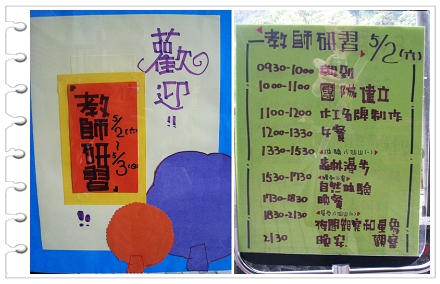 歡迎!!
教師研習
5/2(六)
~
5/3(日)
教師研習 5/2(六)
0930-1000 報到
1000-1100 團隊建立
1100-1200
1200-1330 午餐
1330-1530
森林漫步
1530-1730
自然体驗
1730-1830 晚餐
1830-2130
夜間觀察和星象觀察
2130 晚安